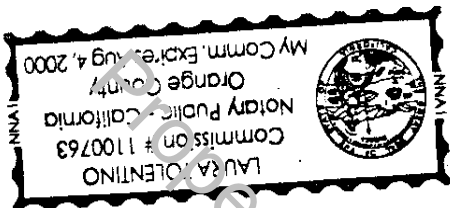 LAURA TOLENTINO
Commission # 1100763
Notary Public - California
Orange County
My Comm. Expires Aug 4, 2000
NNA1
NNA1